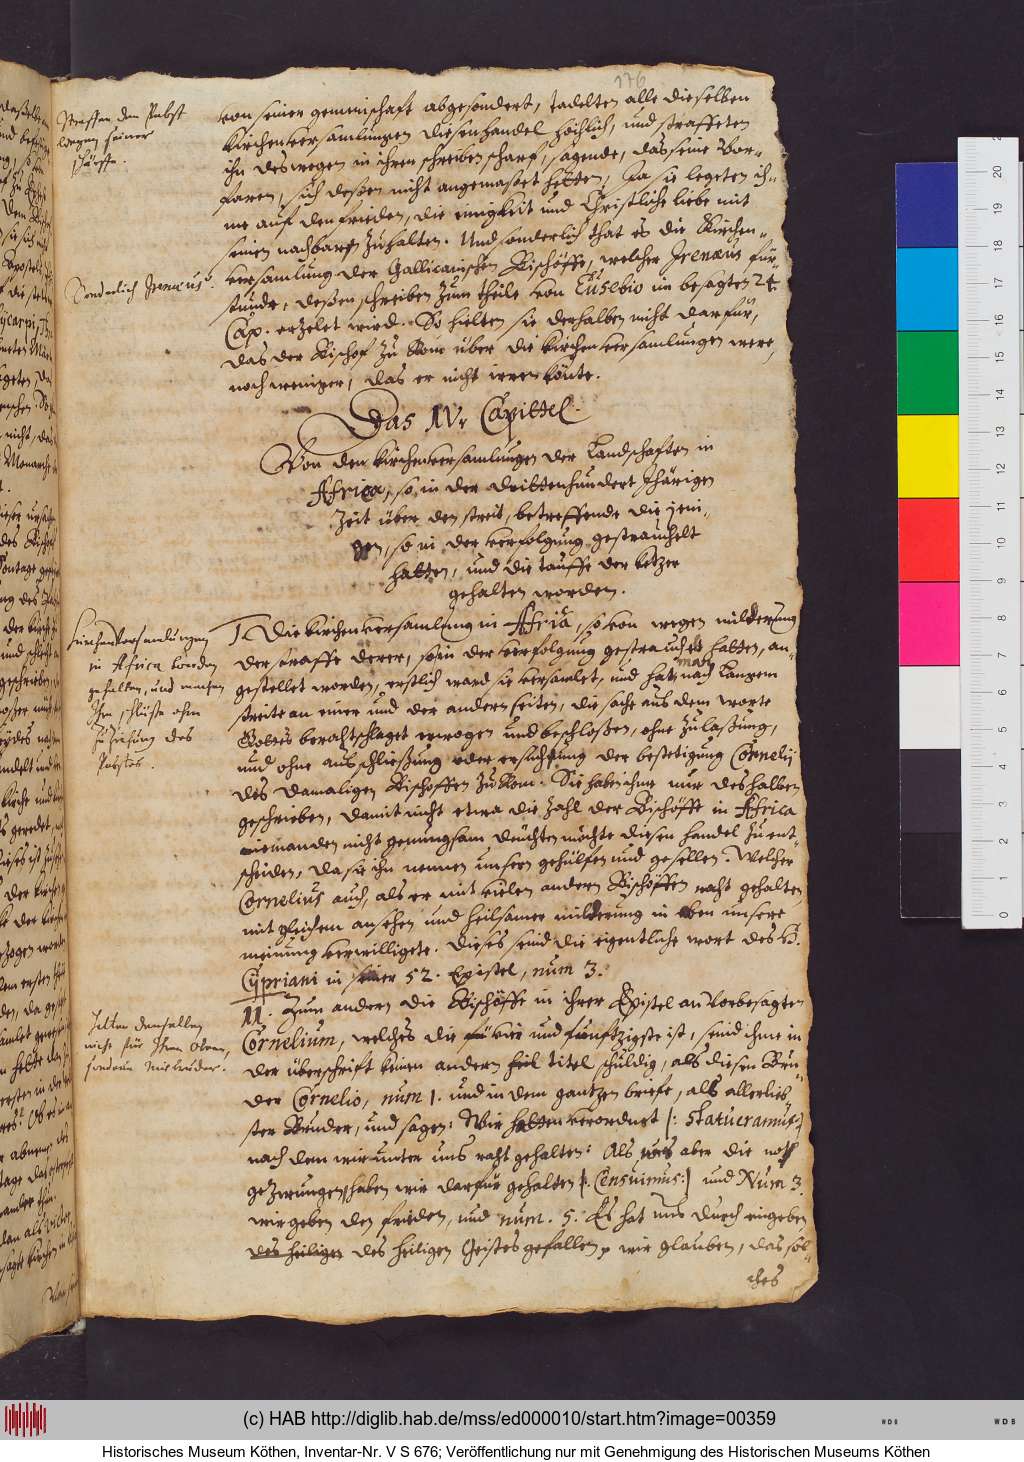 176
Straffen den Pabst
wegen seiner
schärffe.
von seiner gemeinschaft abgesondert, tadelten alle dieselben
kirchenversamlungen diesen handel höchlich, und straffeten
ihn deswegen in ihren schreiben scharf, sagende, das seine Vor-
faren, sich deßen nicht angemaßet hetten, Ja sie legeten ih-
me auf den frieden, die einigkeit und Christliche liebe mit
seinen nachbarn zuhalten. Und sonderlich that es die Kirchen-
versamlung der Gallicanischen Bischöffe, welcher Irenæus für-
Sonderlich Irenæus.
stunde, deßen schreiben zum theile von Eusebio im besagten 24
Cap. erzelet wird. So hielten sie derhalben nicht darfür,
das der Bischof zu Rom über die kirchenversamlungen were,
noch weniger, das er nicht irren könte.
Das IV. Capittel.
Von den kirchenversamlungen der Landschaften in
Africa, so in der drittenhundert Jhärigen
Zeit über den streit, betreffende die jeni-
gen, so in der verfolgung gestrauchelt
hatten, und die tauffe der ketzer
gehalten worden.
Kirchenversamlungen
in Africa worden
gehalten, und machen
Ihre schlüße ohne
zuziehung des
Pabstes.
I. Die kirchenversamlung in Africa, so von wegen milderung
der straffe derer, so in der verfolgung gestrauchelt hatten, an-
gestellet worden, erstlich ward sie versamlet, und hat man nach langem
streite an einer und der andern seiten, die sache aus dem worte
Gottes berahtschlaget erwogen und beschloßen, ohne zulaßung,
und ohne ausschließung oder ersuchung der bestetigung Cornelij
des damaligen Bischoffen zu Rom. Sie haben ihme nur deshalben
geschrieben, damit nicht etwa die Zahl der Bischöffe in Africa
iemanden nicht genungsam deuchten möchte diesen handel zu ent-
scheiden, da sie ihn nennen unsern gehülfen und gesellen. Welcher
Cornelius auch, als er mit vielen andern Bischöffen raht gehalten,
mit gleichem ansehen und heilsamer milderung in eben unsere
meinung verwilligete. Dieses seind die eigentliche wort des H.
Cypriani in seiner 52. Epistel, num 3.
II. Zum andern die Bischöffe in ihrer Epistel an vorbesagten
Cornelium, welches die vier und funftzigste ist, seind ihme in
Jtem denselben
nicht für Ihren Obern,
sondern Mitbruder.
der überschrift keinen andern titel schuldig, als diesen Bru-
der Cornelio, num 1. und in dem gantzen briefe, als allerlieb-
ster Bruder, und sagen: Wir hatten verordnet [: Statueramus:]
nach dem wir unter uns raht gehalten: Als uns aber die noht
gezwungen, haben wir darfür gehalten [: Censuimus:] und Num 3.
wir geben den frieden, und num. 5. Es hat uns durch eingeben
des heiligen des heiligen Geistes gefallen, wir glauben, das sol-
ches
(c) HAB http://diglib.hab.de/mss/ed000010/start.htm?image=00359
Historisches Museum Köthen, Inventar-Nr. V S 676; Veröffentlichung nur mit Genehmigung des Historischen Museums Köthen